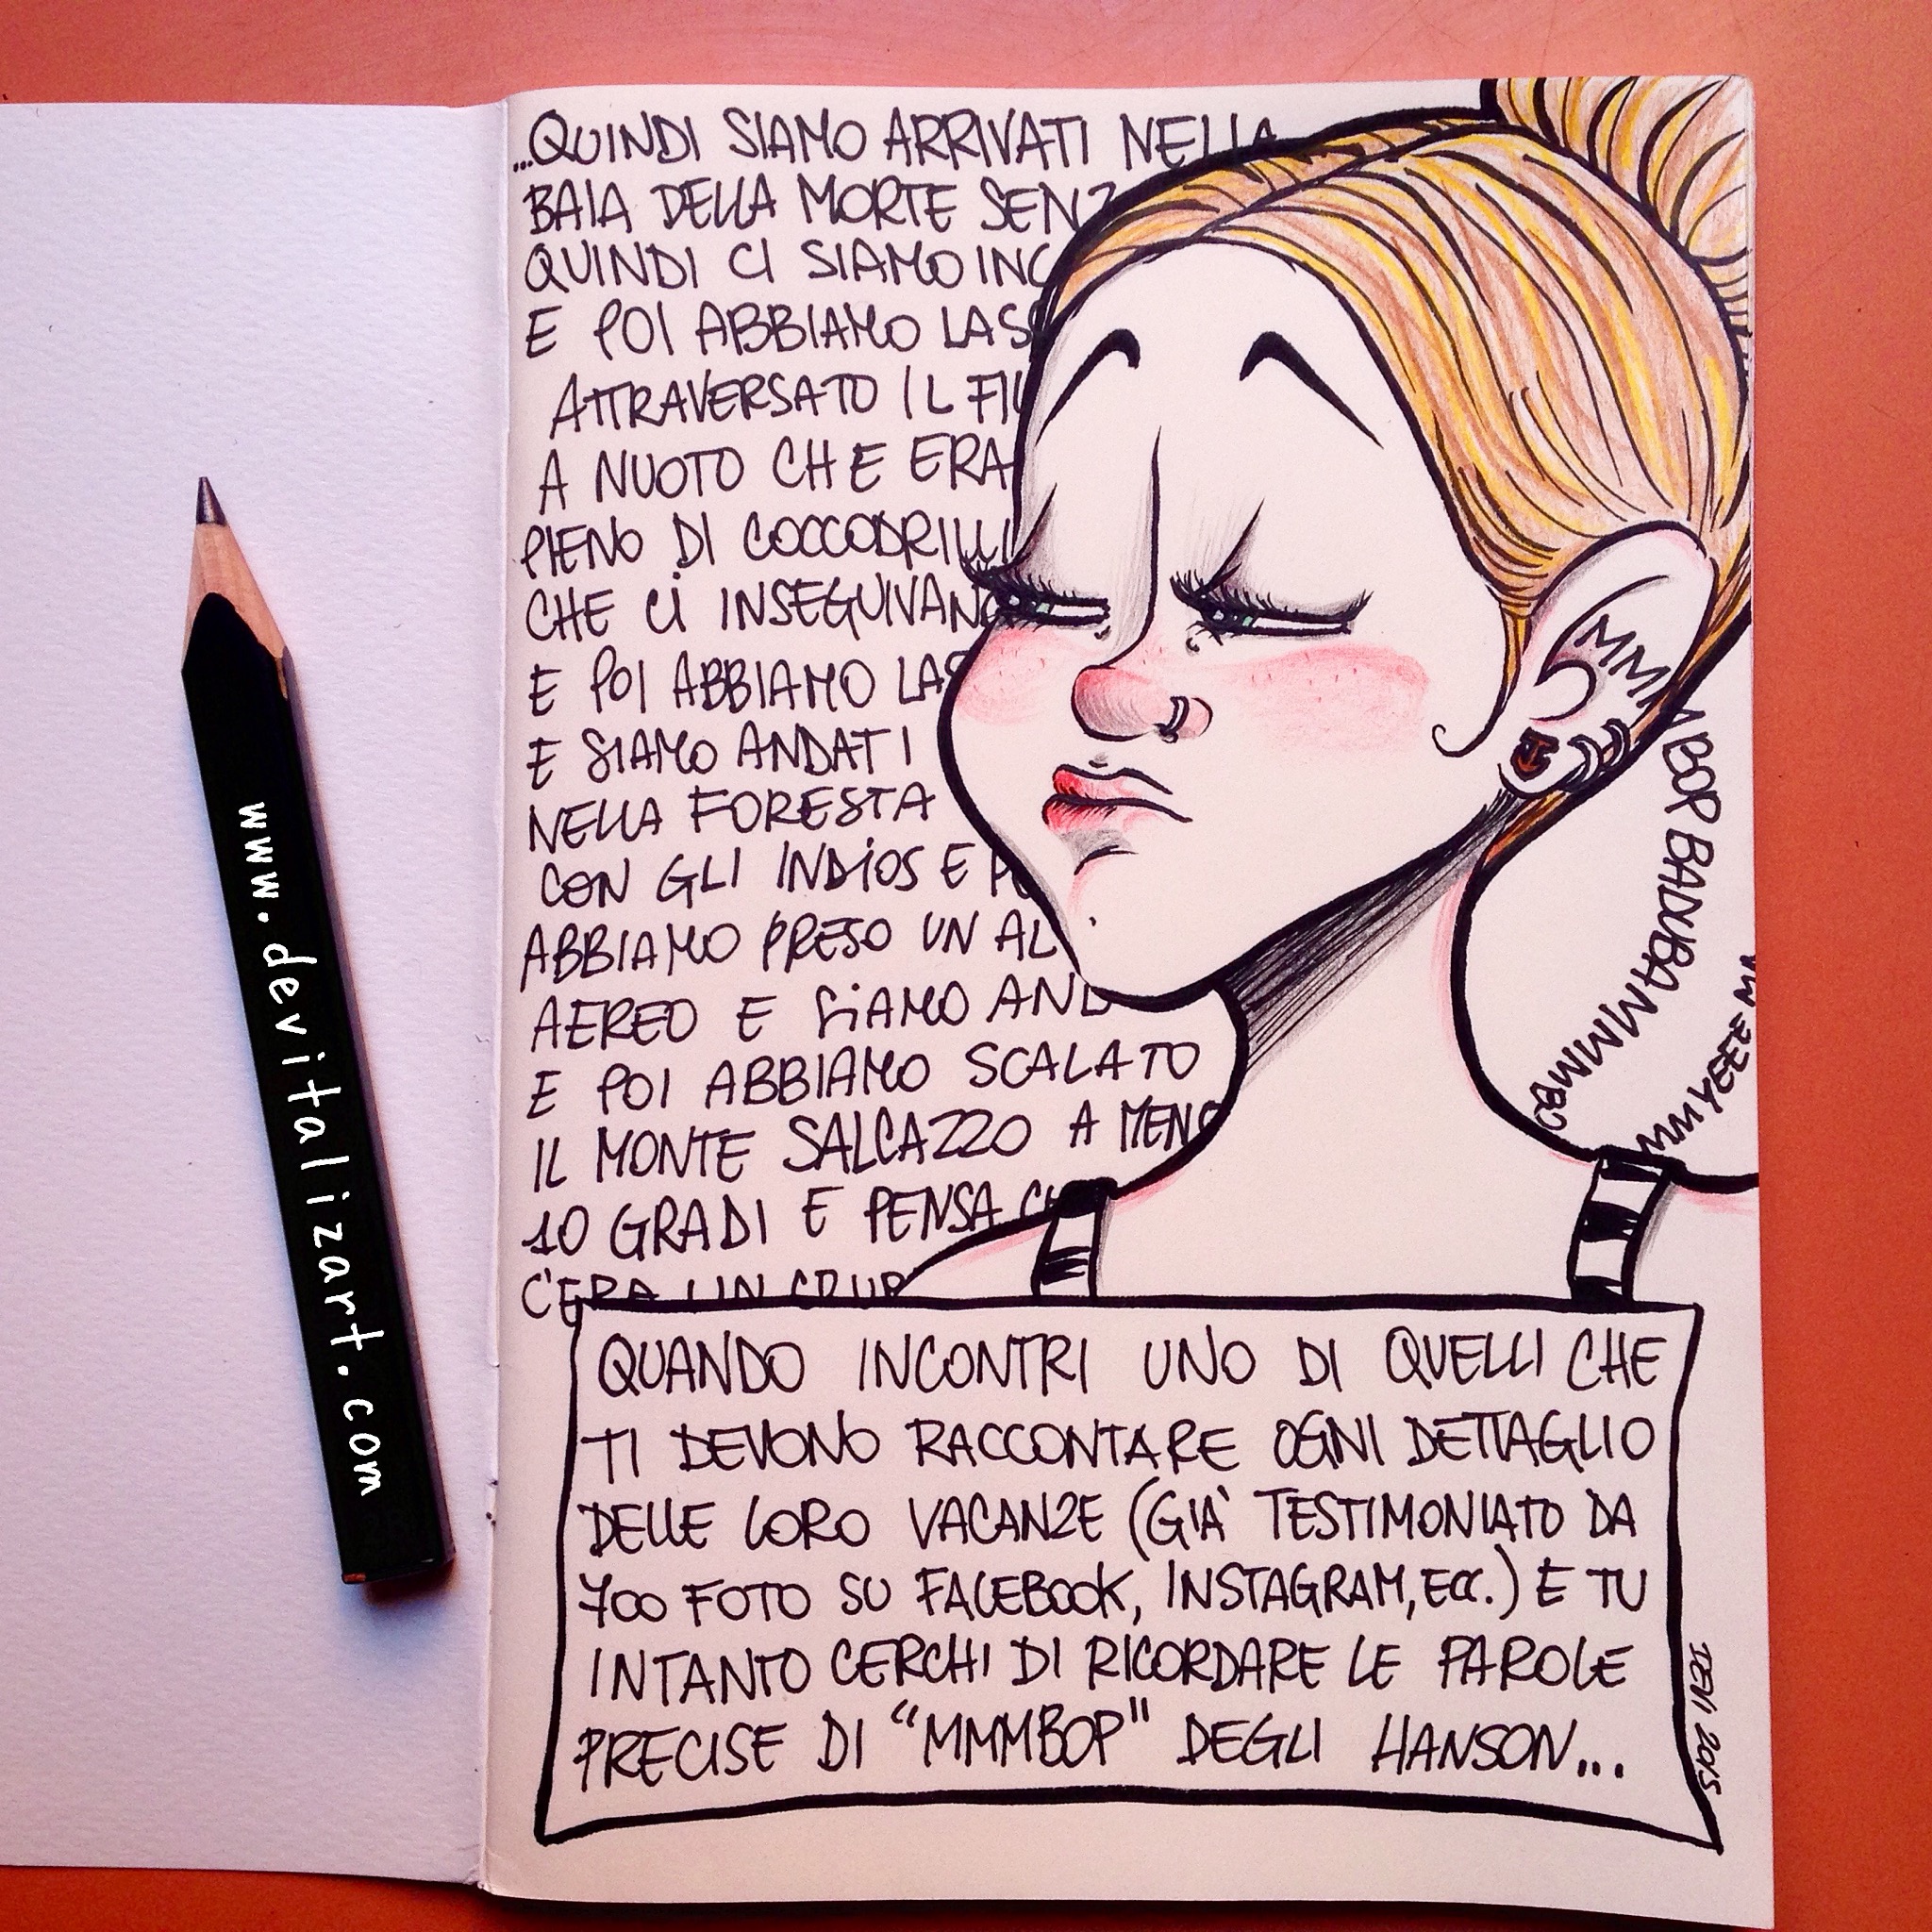 ...QUINDI SIAMO ARRIVATI NELLA
BAIA DELLA MORTE SENZ
QUINDI CI SIAMO INC
E POI ABBIAMO LASC
ATTRAVERSATO IL FIU
A NUOTO CHE ERA
PIENO DI COCCODRILLI
CHE CI INSEGUIVANO
E POI ABBIAMO LAS
E SIAMO ANDATI
NELLA FORESTA
CON GLI INDIOS E PO
ABBIAMO PRESO UN AL
AEREO E SIAMO AND
E POI ABBIAMO SCALATO
IL MONTE SALCAZZO A MENO
10 GRADI E PENSA CH
C'ERA UN CRUP
MMMMBOP BADUBA MMMBO
MMYEEE M
QUANDO INCONTRI UNO DI QUELLI CHE
TI DEVONO RACCONTARE OGNI DETTAGLIO
DELLE LORO VACANZE (GIÀ TESTIMONIATO DA
700 FOTO SU FACEBOOK, INSTAGRAM, ECC.) E TU
INTANTO CERCHI DI RICORDARE LE PAROLE
PRECISE DI "MMMBOP" DEGLI HANSON...
DEVI 2015
www.devitalizart.com